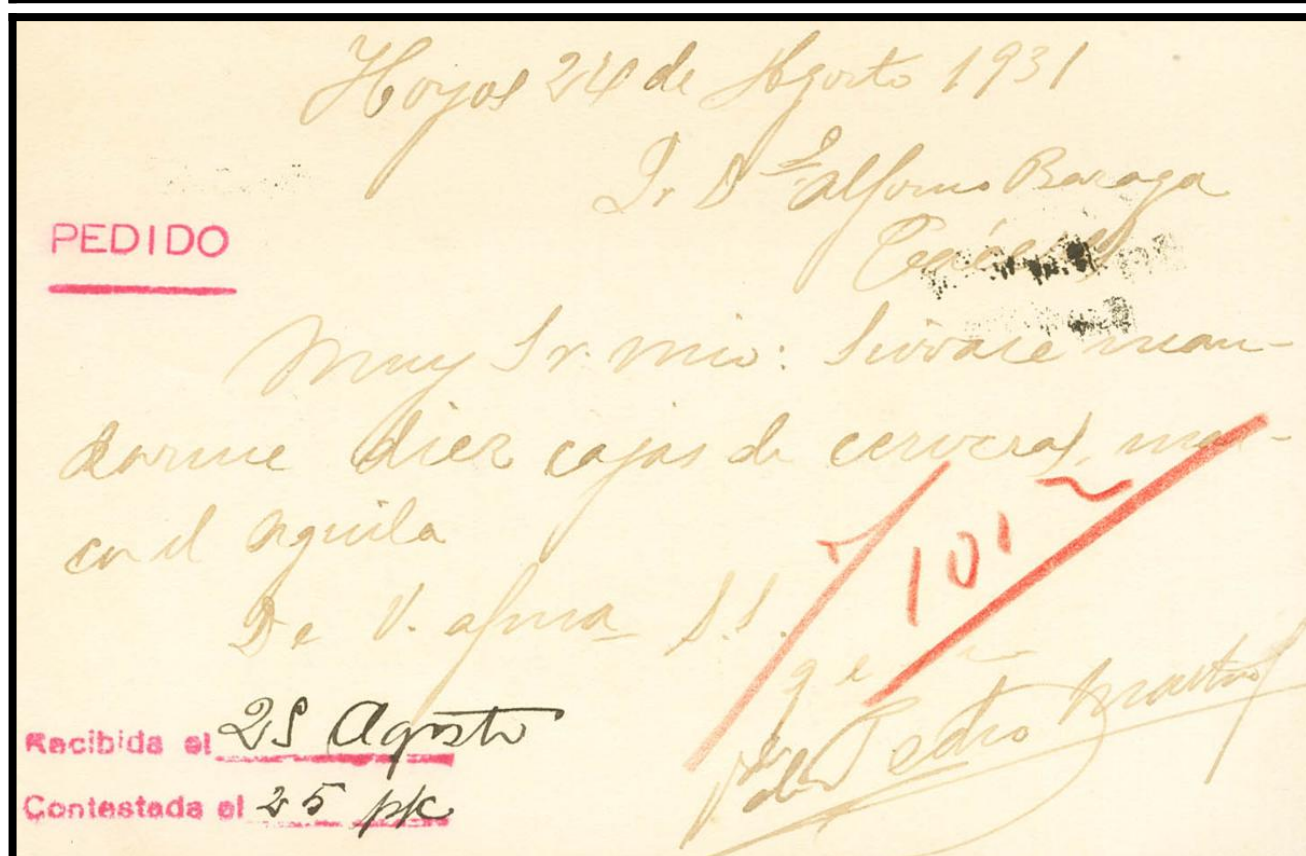 Hoyos 24 de Agosto 1931
Sr D Alfonso Baraga
Cáceres
PEDIDO
Muy Sr. mio: Sirvase man-
darme diez cajas de cervezas, mar-
ca el Aguila
De V. afmo S.S.
101
q e
Pedro Martin
Recibida el 25 Agosto
Contestada el 25 pk